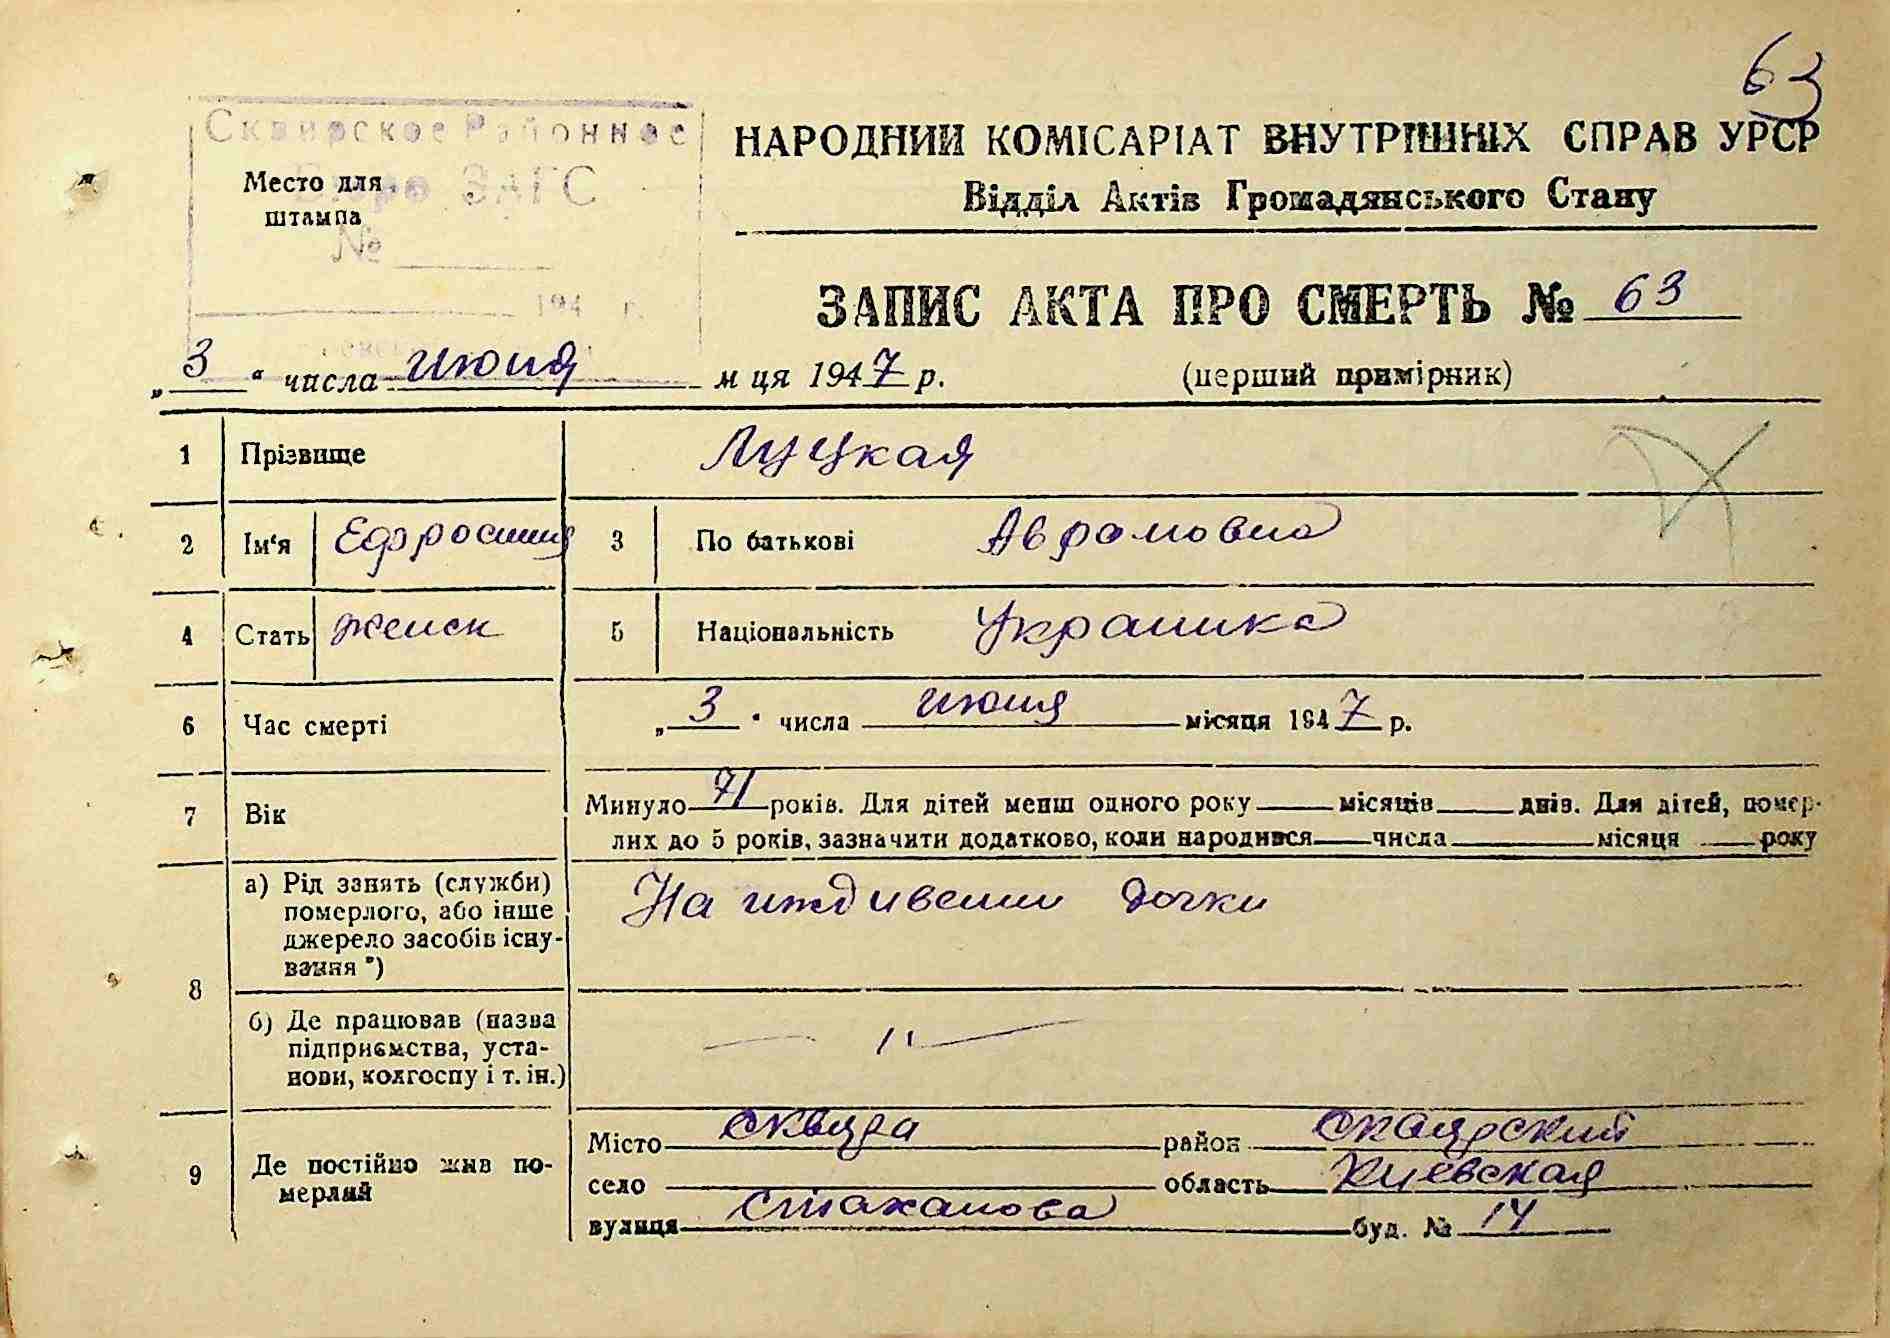 63
Сквирское Районное
Бюро ЗАГС
Место для
штампа
№
194 г.
НАРОДНИЙ КОМІСАРІАТ ВНУТРІШНІХ СПРАВ УРСР
Відділ Актів Громадянського Стану
ЗАПИС АКТА ПРО СМЕРТЬ № 63
„3“ числа июня м ця 1947 р. (перший примірник)
1 Прізвище Луцкая
2 Ім‘я Ефросиния 3 По батькові Аврамовна
4 Стать женск 5 Національність Украинка
6 Час смерті „3“ числа июня місяця 1947 р.
7 Вік Минуло 71 років. Для дітей менш одного року місяців днів. Для дітей, помер-
лих до 5 років, зазначити додатково, коли народився числа місяця року
8 а) Рід занять (служби)
померлого, або інше
джерело засобів існу-
вання *)
На иждивении дочки
б) Де працював (назва
підприємства, уста-
нови, колгоспу і т. ін.)
— 〃 —
9 Де постійно жив по-
мерлий
Місто Сквира район Сквирский
село область Киевская
вулиця Стаханова буд. № 14